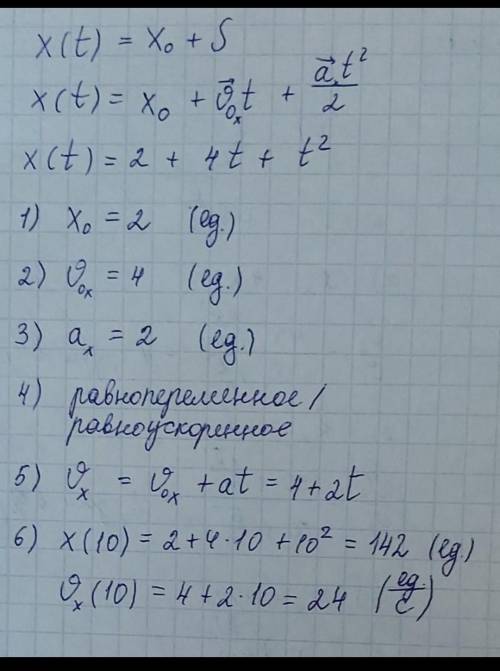 x(t) = x₀ + S
x(t) = x₀ + ϑ⃗₀ₓt + a⃗t²/2
x(t) = 2 + 4t + t²
1) x₀ = 2 (ед.)
2) ϑ₀ₓ = 4 (ед.)
3) aₓ = 2 (ед.)
4) равнопеременное/
равноускоренное
5) ϑₓ = ϑ₀ₓ + at = 4 + 2t
6) x(10) = 2 + 4·10 + 10² = 142 (ед.)
ϑₓ(10) = 4 + 2·10 = 24 (ед/с)